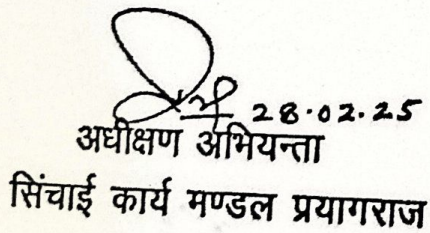 28.02.25
अधीक्षण अभियन्ता
सिंचाई कार्य मण्डल प्रयागराज